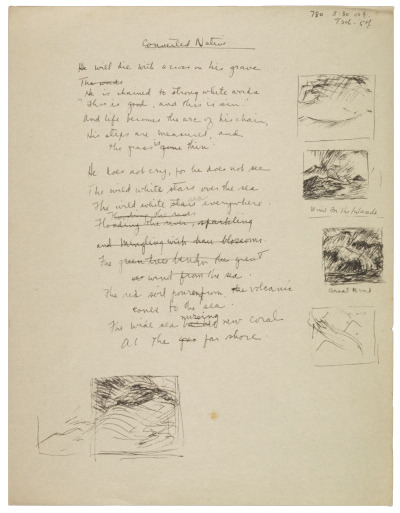 780
Converted Native
He will die with a cross in his grave
The words
He is chained to strong white words
"This is good, and this is sin."
And life becomes the arc of his chain,
His steps are measured, and
the grass is gone thin.
He does not cry, for he does not see
The wild white stars over the sea
The wild white stars everywhere.
Flooding the reefs
Flooding the reefs, sparkling
and mingling with haw blossoms
The green trees bend in the great
wind from the sea.
The red soil pours from the volcanic
cones to the sea.
The wise sea nursing new coral
At the far shore
Wind On the Islands
Great Wind